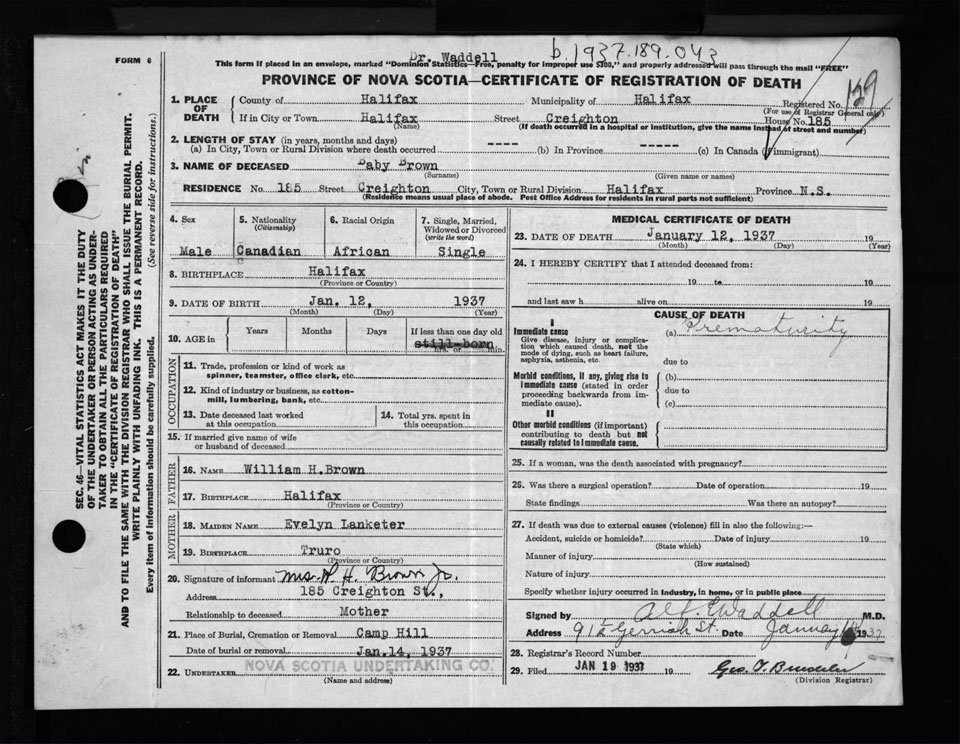 FORM 6
Dr. Waddell
b.1937.189.043
This form if placed in an envelope, marked "Dominion Statistics—Free, penalty for improper use $300," and properly addressed will pass through the mail "FREE"
PROVINCE OF NOVA SCOTIA—CERTIFICATE OF REGISTRATION OF DEATH
1. PLACE OF DEATH
County of Halifax Municipality of Halifax Registered No. 189
(For use of Registrar General only)
If in City or Town Halifax Street Creighton House No. 185
(Name) (If death occurred in a hospital or institution, give the name instead of street and number)
2. LENGTH OF STAY (in years, months and days)
(a) In City, Town or Rural Division where death occurred ---- (b) In Province ----- (c) In Canada (if immigrant)
3. NAME OF DECEASED Baby Brown
(Surname) (Given name or names)
RESIDENCE No. 185 Street Creighton City, Town or Rural Division Halifax Province N.S.
(Residence means usual place of abode. Post Office Address for residents in rural parts not sufficient)
4. Sex
Male
5. Nationality
(Citizenship)
Canadian
6. Racial Origin
African
7. Single, Married, Widowed or Divorced
(write the word)
Single
8. BIRTHPLACE Halifax
(Province or Country)
9. DATE OF BIRTH Jan. 12, 1937
(Month) (Day) (Year)
10. AGE in
Years Months Days If less than one day old
still-born
hrs. or min.
OCCUPATION
11. Trade, profession or kind of work as
spinner, teamster, office clerk, etc.
12. Kind of industry or business, as cotton-
mill, lumbering, bank, etc.
13. Date deceased last worked
at this occupation
14. Total yrs. spent in
this occupation
15. If married give name of wife
or husband of deceased
FATHER
16. NAME William H.Brown
17. BIRTHPLACE Halifax
(Province or Country)
MOTHER
18. MAIDEN NAME Evelyn Lanketer
19. BIRTHPLACE Truro
(Province or Country)
20. Signature of informant Mrs. W. H. Brown Jr.
Address 185 Creighton St.,
Relationship to deceased Mother
21. Place of Burial, Cremation or Removal Camp Hill
Date of burial or removal Jan.14, 1937
22. UNDERTAKER NOVA SCOTIA UNDERTAKING CO.
(Name and address)
MEDICAL CERTIFICATE OF DEATH
23. DATE OF DEATH January 12, 1937 19
(Month) (Day) (Year)
24. I HEREBY CERTIFY that I attended deceased from:
19 to 19
and last saw h alive on 19
CAUSE OF DEATH
I
Immediate cause
Give disease, injury or complica-
tion which caused death, not the
mode of dying, such as heart failure,
asphyxia, asthenia, etc.
(a) Prematurity
due to
Morbid conditions, if any, giving rise to
immediate cause (stated in order
proceeding backwards from im-
mediate cause).
(b)
due to
(c)
II
Other morbid conditions (if important)
contributing to death but not
causally related to immediate cause.
25. If a woman, was the death associated with pregnancy?
26. Was there a surgical operation? Date of operation 19
State findings Was there an autopsy?
27. If death was due to external causes (violence) fill in also the following:—
Accident, suicide or homicide? Date of injury 19
(State which)
Manner of injury
(How sustained)
Nature of injury
Specify whether injury occurred in industry, in home, or in public place
Signed by Alf. E. Waddell M.D.
Address 91½ Gerrish St. Date January 1937
28. Registrar's Record Number
29. Filed JAN 19 1937 19
(Division Registrar)
SEC. 46—VITAL STATISTICS ACT MAKES IT THE DUTY
OF THE UNDERTAKER OR PERSON ACTING AS UNDER-
TAKER TO OBTAIN ALL THE PARTICULARS REQUIRED
IN THE "CERTIFICATE OF REGISTRATION OF DEATH"
AND TO FILE THE SAME WITH THE DIVISION REGISTRAR WHO SHALL ISSUE THE BURIAL PERMIT.
WRITE PLAINLY WITH UNFADING INK. THIS IS A PERMANENT RECORD.
Every item of information should be carefully supplied. (See reverse side for instructions.)